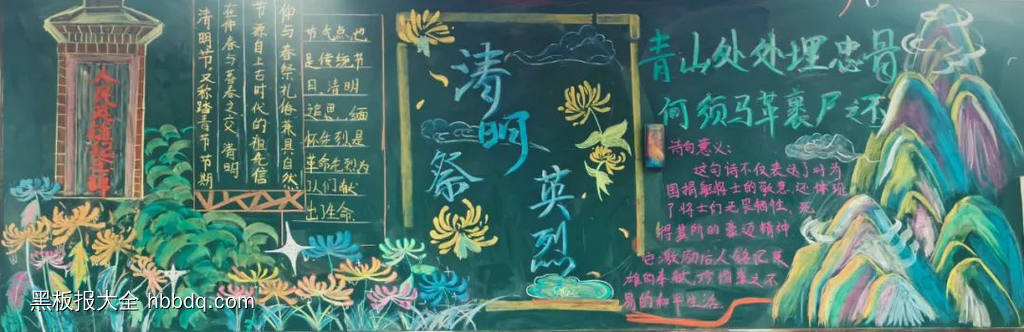 人民英雄纪念碑
清明节又称踏青节
在仲春与暮春之交 清明
节源自上古时代的祖先信
仰与春祭礼俗兼具自然
节气点也
是传统节
日 清明
追思 缅
怀先烈是
革命先烈为
人们献
出了生命
清明祭英烈
青山处处埋忠骨
何须马革裹尸还
诗句意义:
这句话不仅表达了对为
国捐躯将士的敬意 还体现
了将士们无畏牺牲、死
得其所的豪迈精神
它激励后人铭记英
雄的奉献,珍惜来之不
易的和平生活
黑板报大全 hbbdq.com